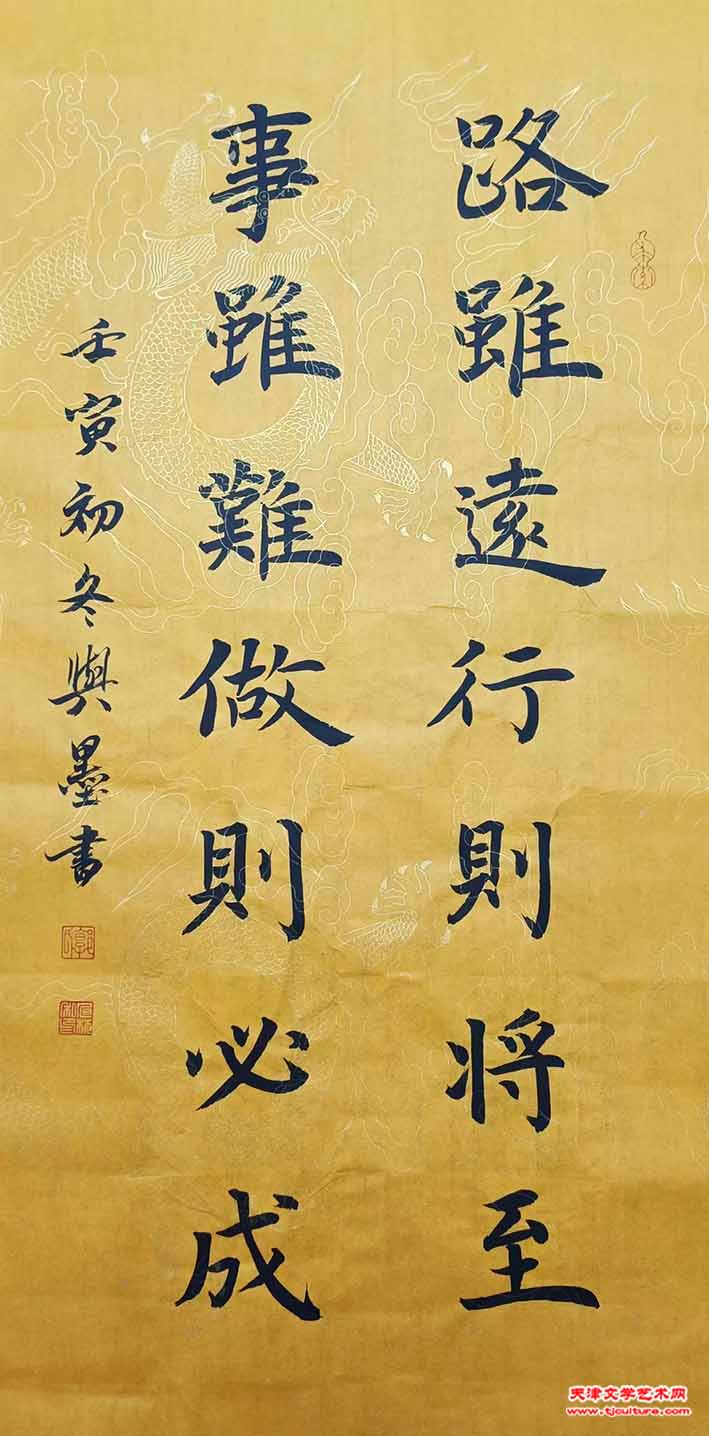 路雖遠行則将至
事雖難做則必成
壬寅初冬與墨书
天津文学艺术网
www.tjculture.com